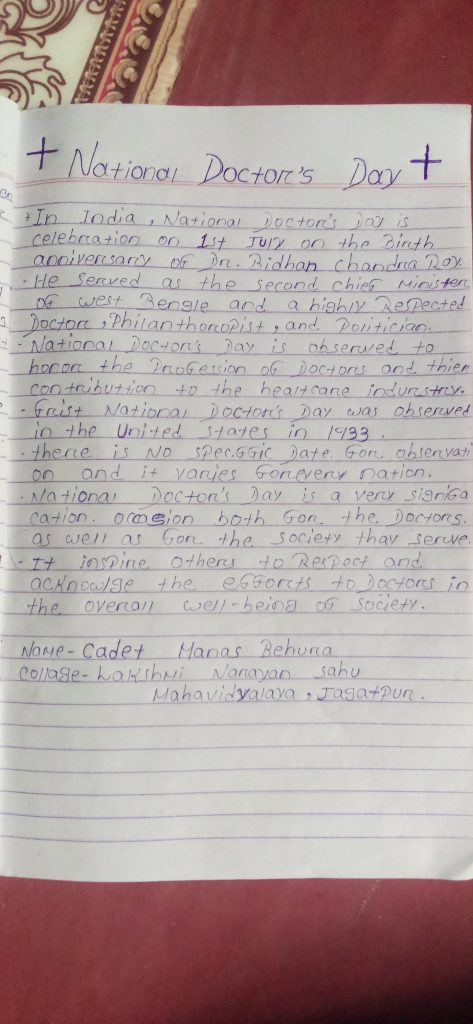 + National Doctor's Day +
• In India, National Doctor's Day is
celebration on 1st July on the Birth
anniversary of Dr. Bidhan Chandra Roy
- He Served as the second chief Minister
of west Bengle and a highly Respected
Doctor, Philanthoropist, and Politician.
- National Doctor's Day is observed to
honor the Profession of Doctors and thier
contribution to the healtcare indurstry.
- First National Doctor's Day was observed
in the United States in 1933.
- there is No specific Date. For observati
on and it varies for every nation.
- National Doctor's Day is a very signifa
cation. ocasion both For the Doctors.
as well as For the society thay serve.
- It inspire others to Respect and
acknowlge the efforts to Doctors in
the overall well-being of society.
Name- Cadet Manas Behura
Collage- Lakshmi Narayan sahu
Mahavidyalaya, Jagatpur.